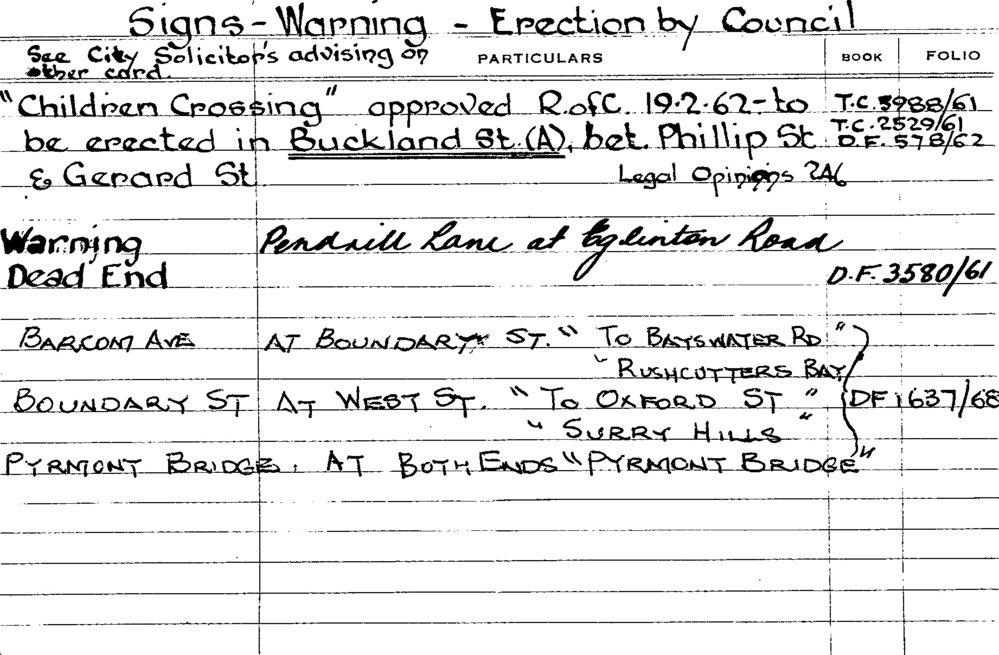 Signs - Warning - Erection by Council
See City Solicitor's advising on
other card.
PARTICULARS BOOK FOLIO
"Children Crossing" approved R.ofC. 19.2.62 - to T.C. 3988/61
be erected in Buckland St. (A), bet. Phillip St. T.C. 2529/61
D.F. 578/62
& Gerard St Legal Opinions 2A6
Warning Pendrill Lane at Eglinton Road
Dead End D.F. 3580/61
BARCOM AVE AT BOUNDARY ST. "TO BAYSWATER RD"
"RUSHCUTTERS BAY
BOUNDARY ST AT WEST ST. "TO OXFORD ST" DF 1637/68
"SURRY HILLS"
PYRMONT BRIDGE. AT BOTH ENDS "PYRMONT BRIDGE"